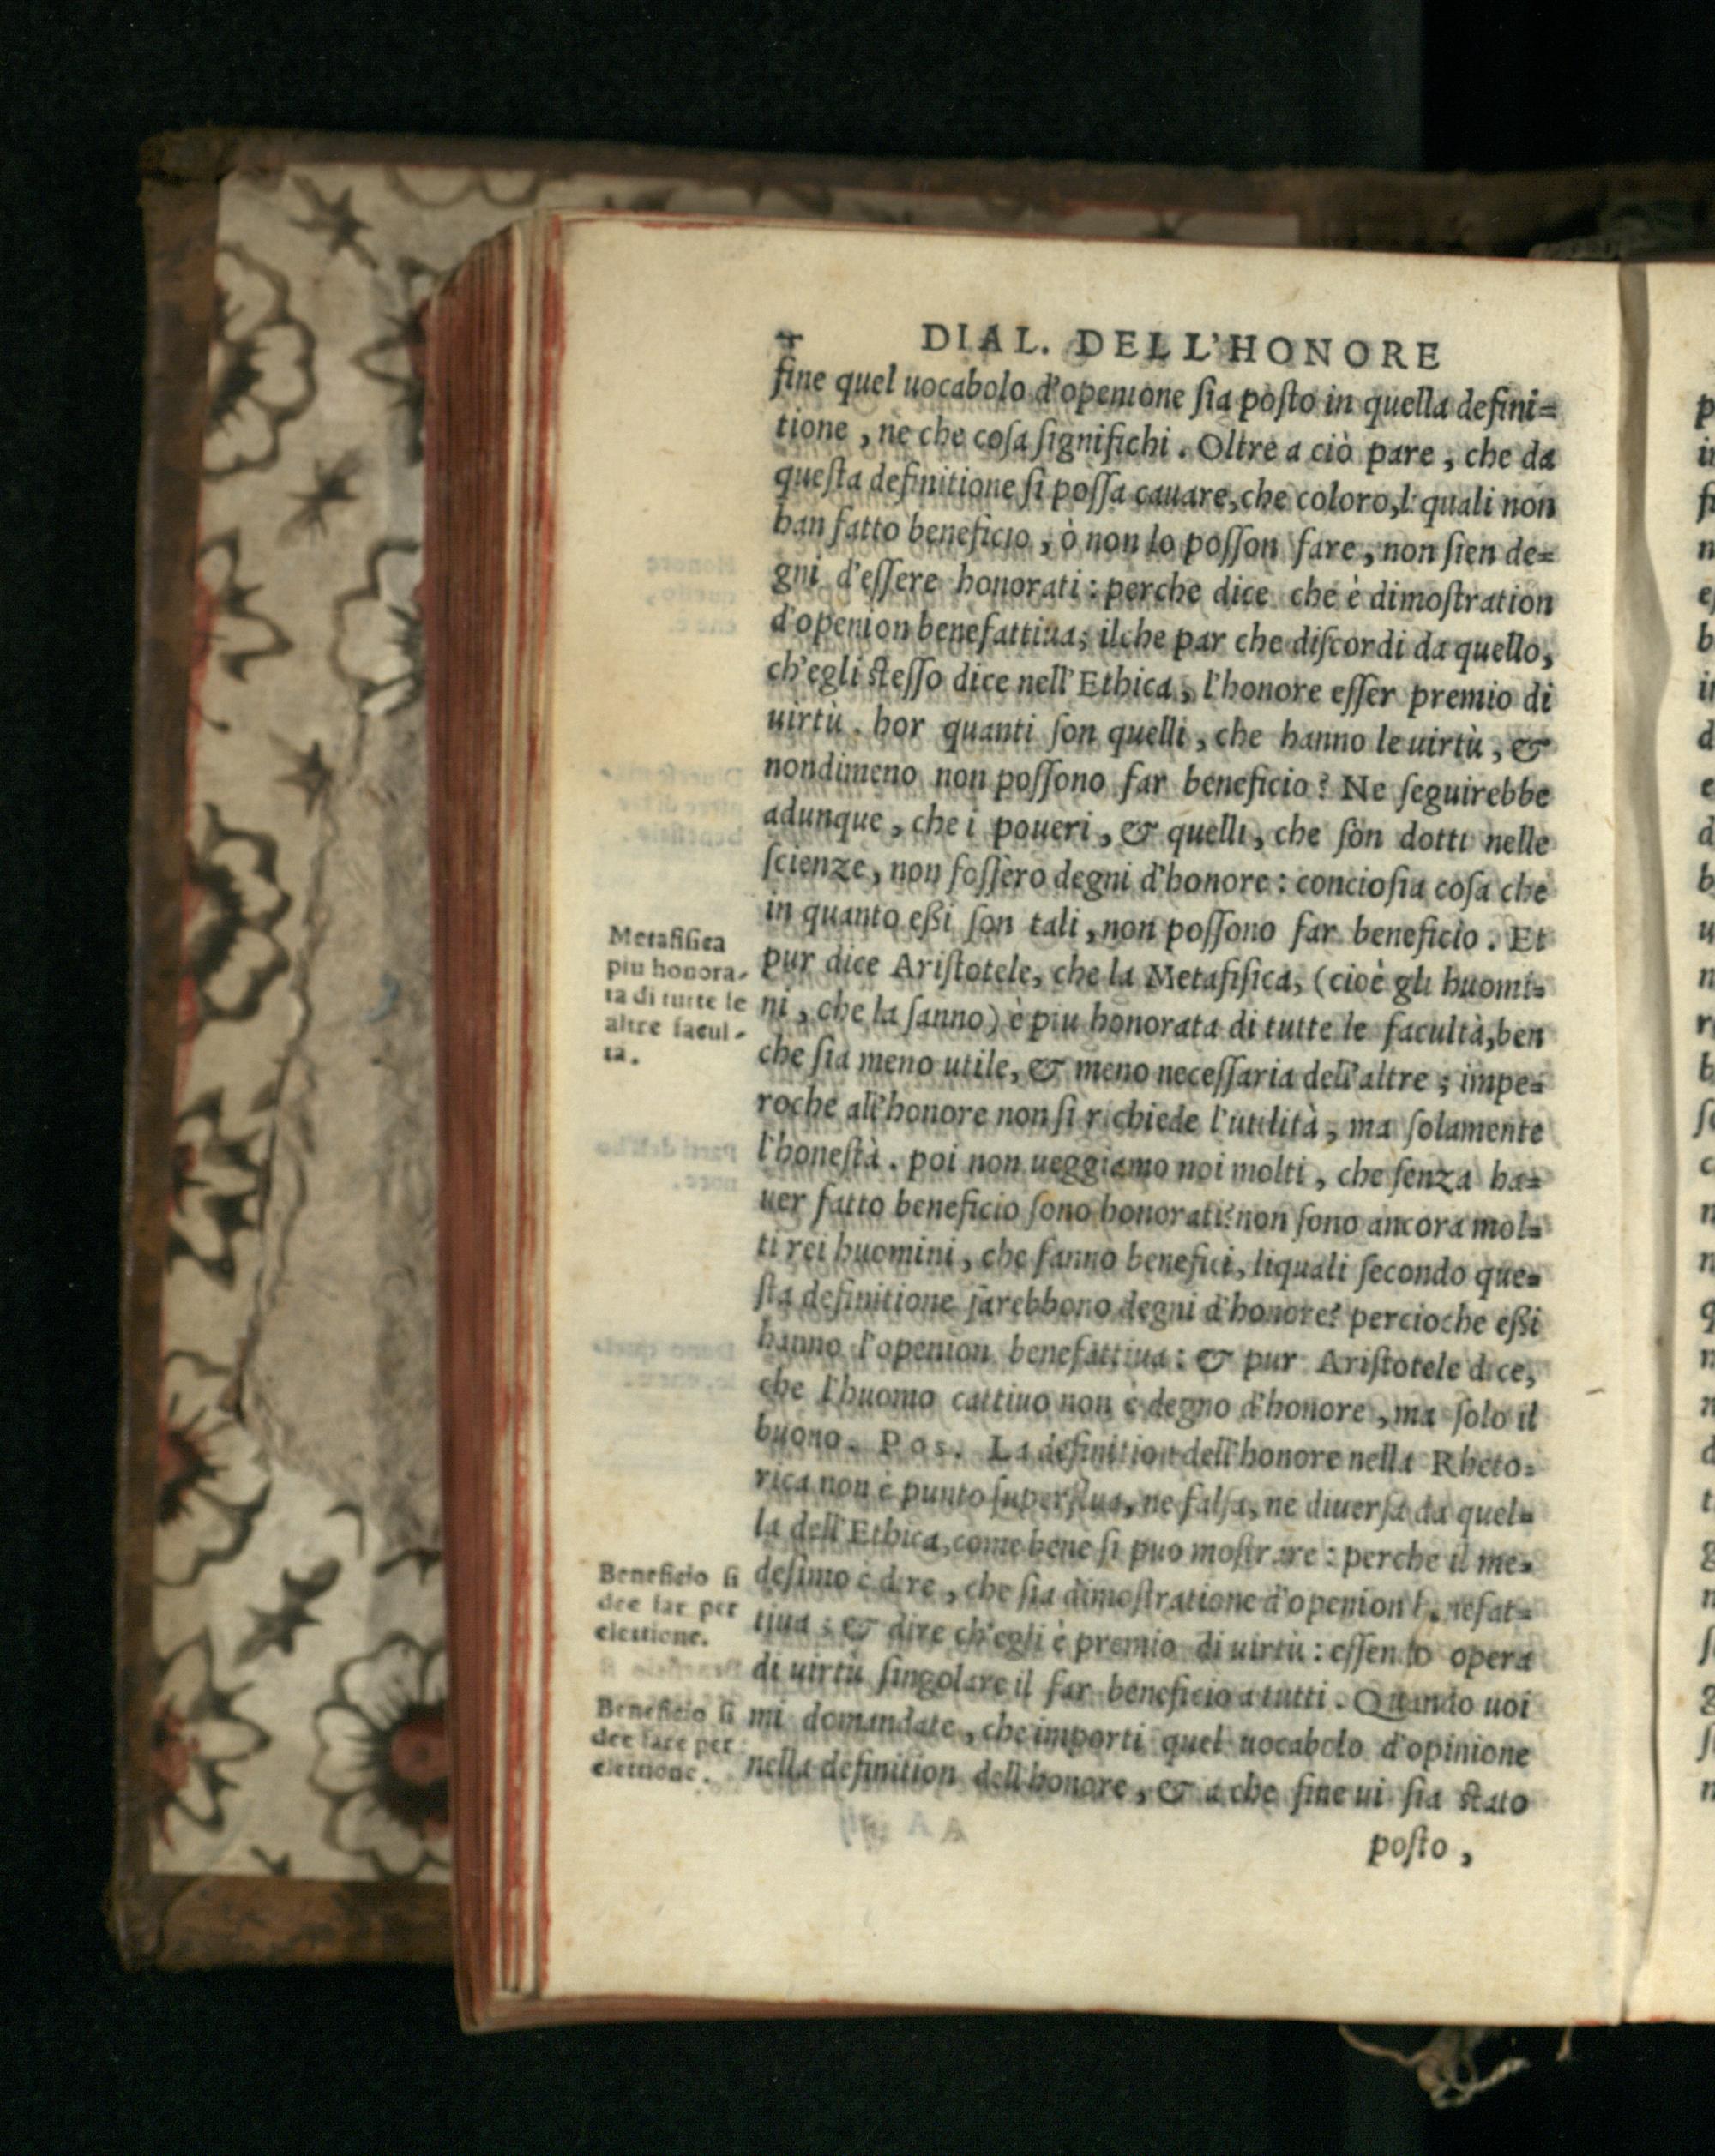 4 DIAL. DELL'HONORE
fine quel uocabolo d'openione ſia poſto in quella defini=
tione, ne che coſa ſignifichi. Oltre a ciò pare, che da
queſta definitione ſi poſſa cauare, che coloro, l quali non
han fatto beneficio, ò non lo poſſon fare, non ſien de=
gni d'eſſere honorati: perche dice che è dimoſtration
d'openion benefattiua; ilche par che diſcordi da quello,
ch'egli ſteſſo dice nell'Ethica, l'honore eſſer premio di
uirtù. hor quanti ſon quelli, che hanno le uirtù, &
nondimeno non poſſono far beneficio? Ne ſeguirebbe
adunque, che i poueri, & quelli, che ſon dotti nelle
ſcienze, non foſſero degni d'honore: concioſia coſa che
in quanto eßi ſon tali, non poſſono far beneficio. Et
pur dice Ariſtotele, che la Metafiſica, (cioè gli huomi=
ni, che la ſanno) è piu honorata di tutte le facultà, ben
che ſia meno utile, & meno neceſſaria dell'altre; impe=
roche all'honore non ſi richiede l'utilità, ma ſolamente
l'honeſtà. poi non ueggiamo noi molti, che ſenza ha=
uer fatto beneficio ſono honorati? non ſono ancora mol=
ti rei huomini, che fanno benefici, liquali ſecondo que=
ſta definitione ſarebbono degni d'honore? percioche eßi
hanno l'openion benefattiua: & pur Ariſtotele dice,
che l'huomo cattiuo non è degno d'honore, ma ſolo il
buono. Pos. La definition dell'honore nella Rheto=
rica non è punto ſuperflua, ne falſa, ne diuerſa da quel=
la dell'Ethica, come bene ſi puo moſtrare: perche il me=
deſimo è dire, che ſia dimoſtratione d'openion benefat=
tiua; & dire ch'egli è premio di uirtù: eſſendo opera
di uirtù ſingolare il far beneficio a tutti. Quando uoi
mi domandate, che importi quel uocabolo d'opinione
nella definition dell'honore, & a che fine ui ſia ſtato
poſto,
Metafiſica
piu honora-
ta di tutte le
altre facul-
tà.
Beneficio ſi
dee far per
elettione.
Beneficio ſi
dee fare per
elettione.